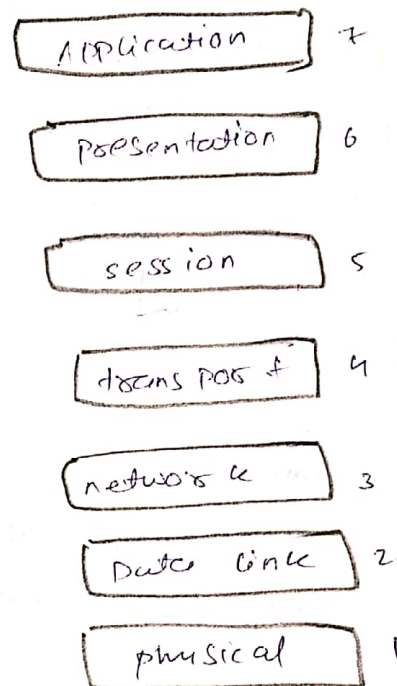 Application 7
Presentation 6
session 5
transport 4
network 3
Data link 2
physical 1